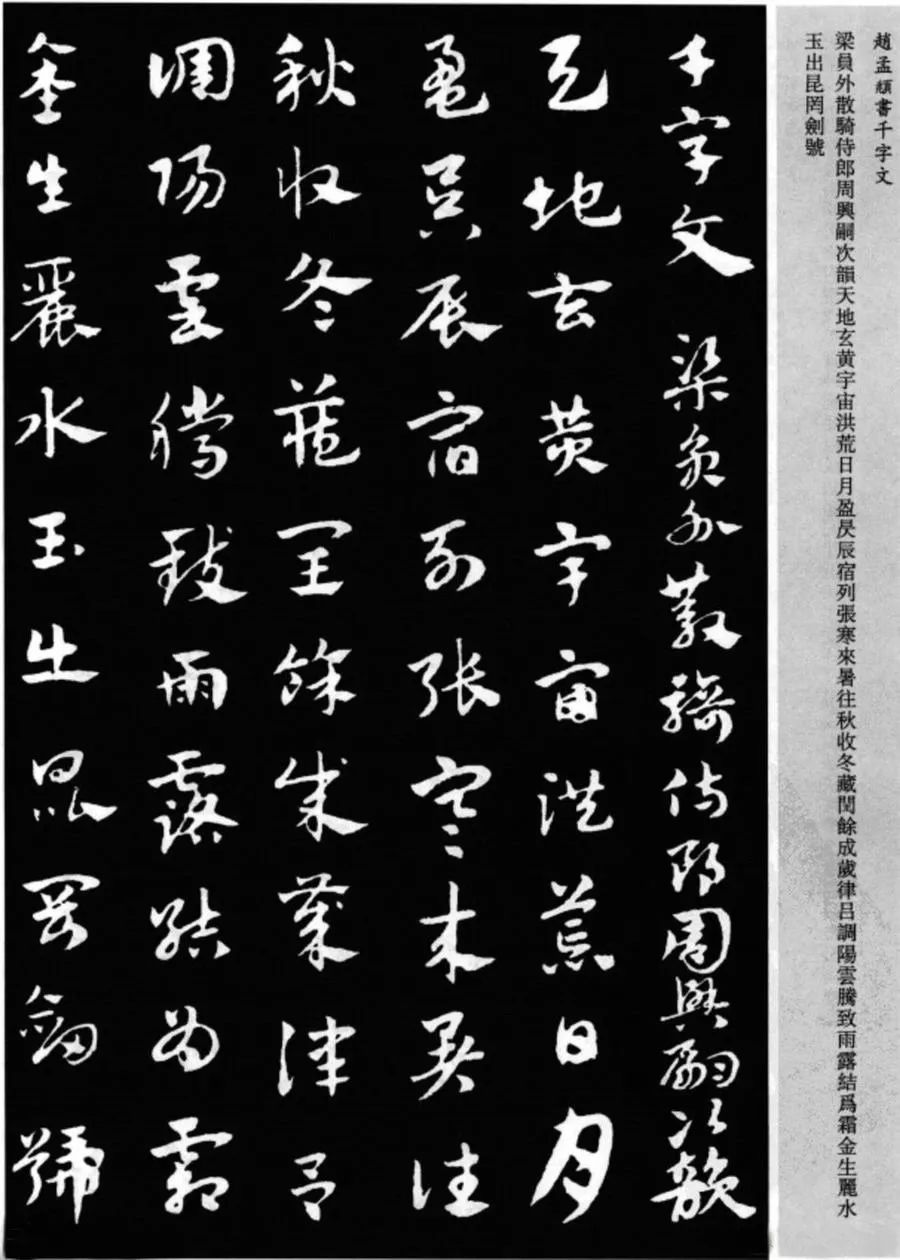 趙孟頫書千字文
梁員外散騎侍郎周興嗣次韻天地玄黄宇宙洪荒日月盈昃辰宿列張寒來暑往秋收冬藏閏餘成歲律吕調陽雲騰致雨露結爲霜金生麗水
玉出昆罔劍號
千字文 梁員外散騎侍郎周興嗣次韻
天地玄黄宇宙洪荒日月
盈昃辰宿列張寒来暑往
秋收冬蔵閏餘成歲律吕
調陽雲騰致雨露結為霜
金生麗水玉出崑岡劍號